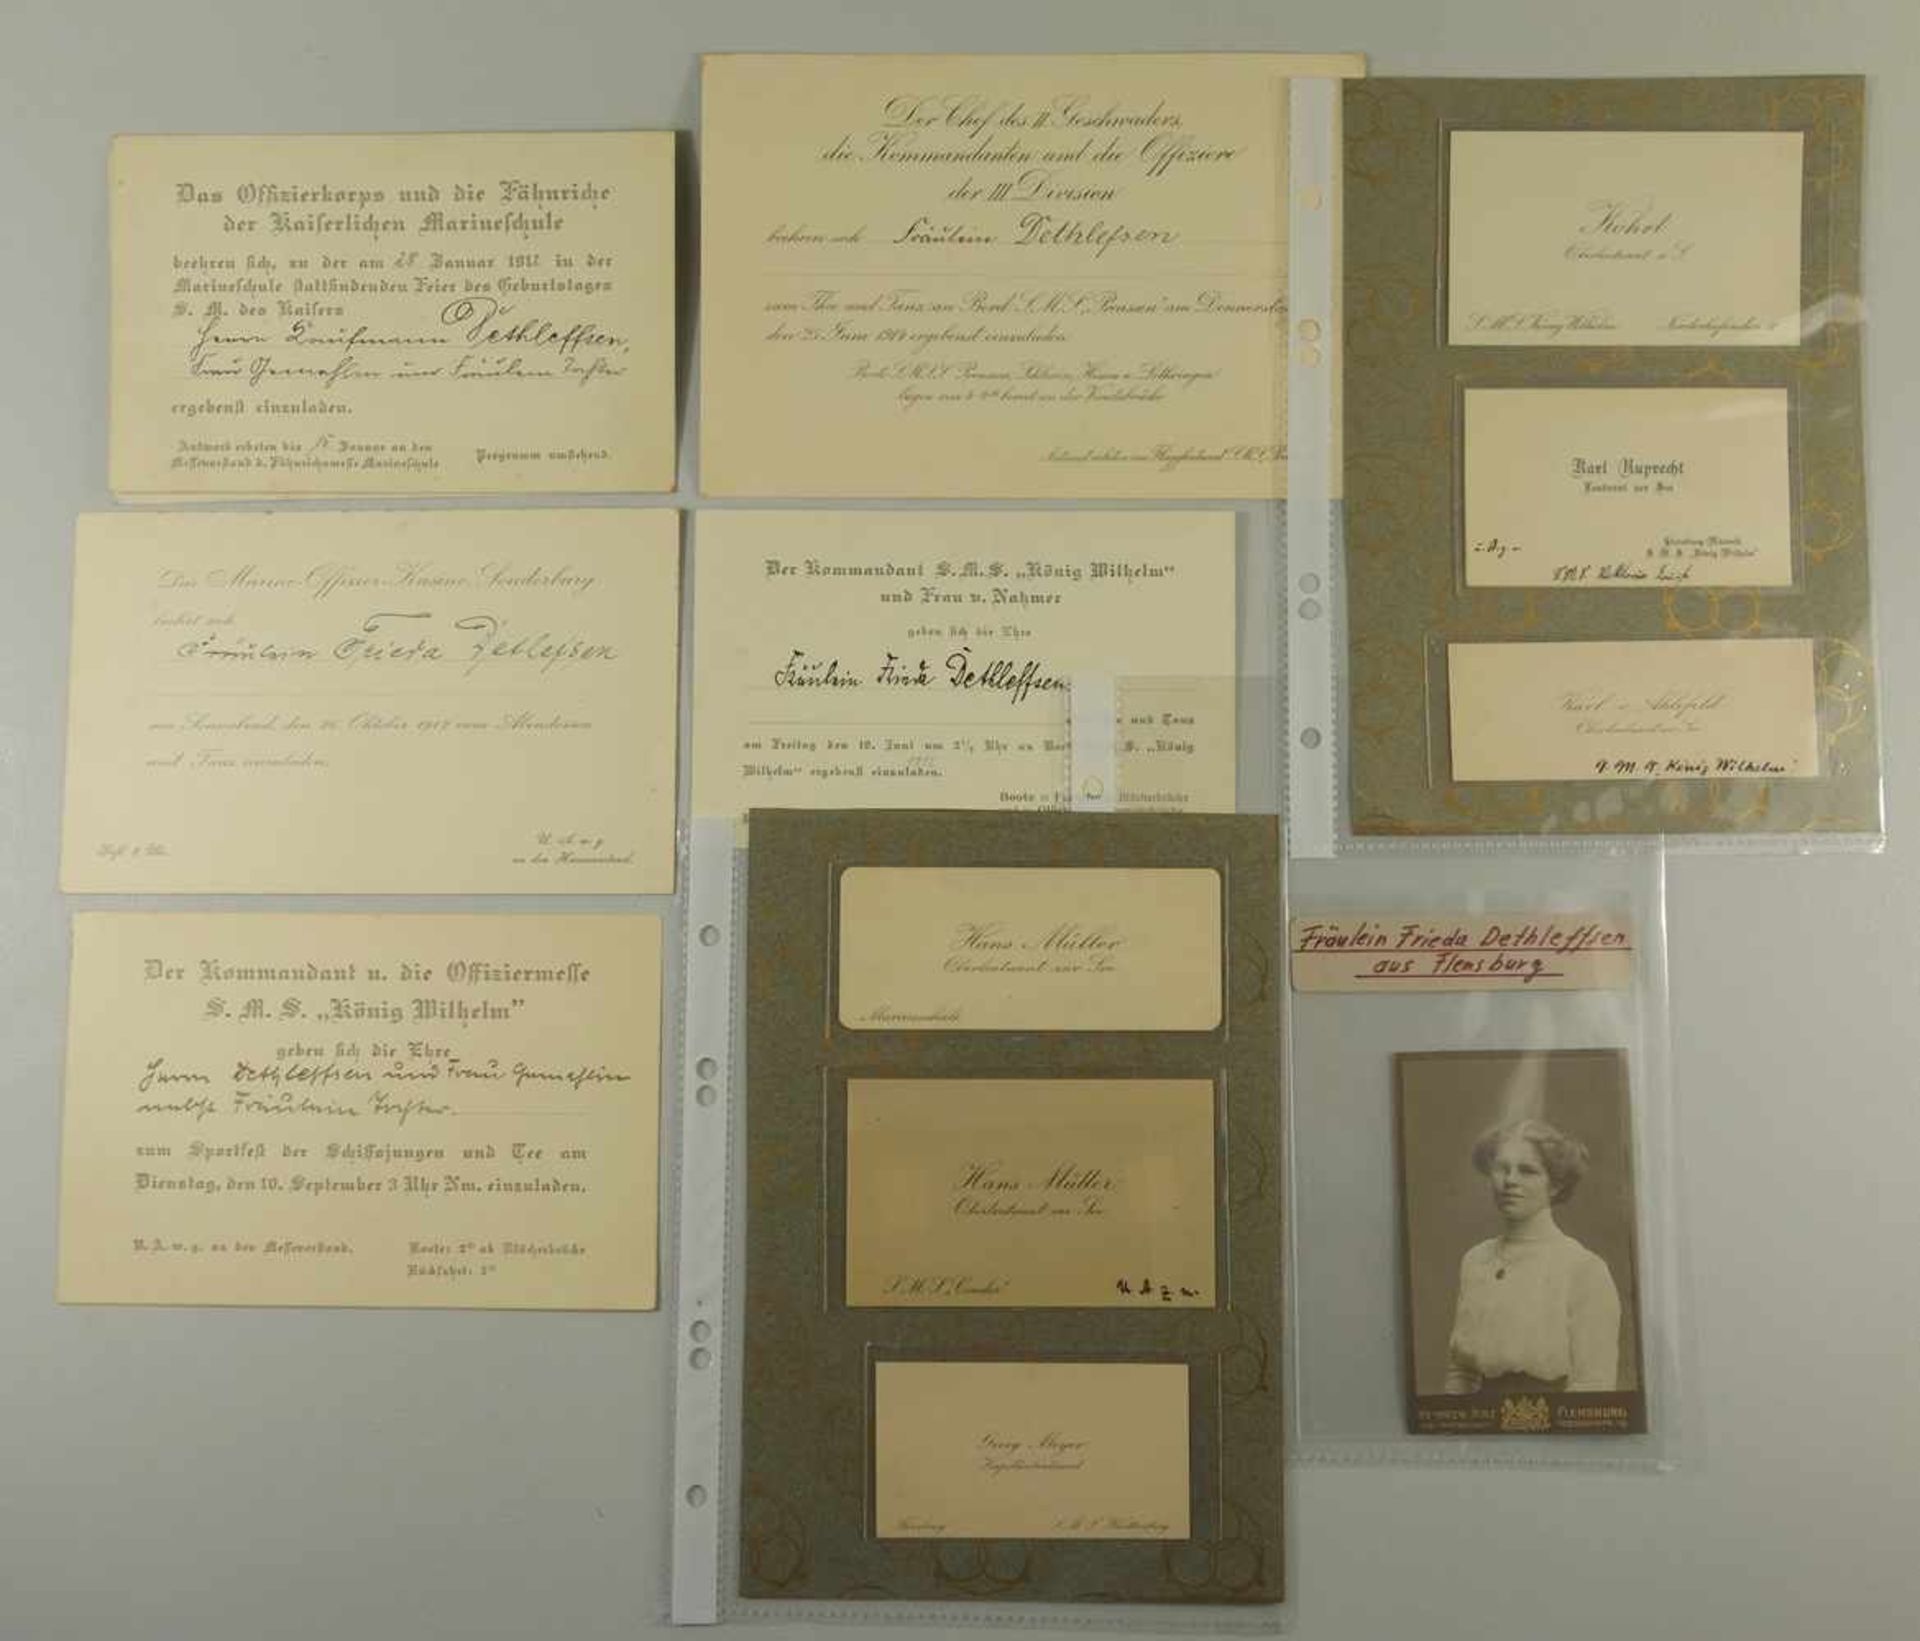 Das Offizierkorps und die Fähnriche
der Kaiserlichen Marineschule
beehren sich, zu der am 28 Januar 1912 in der
Marineschule stattfindenden Feier des Geburtstages
S. M. des Kaisers
Herrn Kaufmann Dethleffsen,
Frau Gemahlin und Fräulein Tochter
ergebenst einzuladen.
Antwort erbeten bis Januar an den
Messevorstand d. Fähnrichsmesse Marineschule
Programm umstehend.
Der Chef des II Geschwaders,
die Kommandanten und die Offiziere
der III Division
beehren sich Fräulein Dethlefsen
zum Thee und Tanz an Bord S.M.S. „Preussen" am Donnersta
den 25 Juni 1914 ergebenst einzuladen.
Boote S.M.S.S. Preussen, Schlesien, Hessen u. Lothringen
Das Marine-Offizier-Kasino Sonderburg
beehrt sich
Fräulein Frieda Dethlefsen
am Sonnabend, den 26. Oktober 1912 zum Abendessen
und Tanz einzuladen.
U. A. w. g.
Der Kommandant S.M.S. „König Wilhelm"
und Frau v. Nahmer
geben sich die Ehre
Fräulein Frieda Dethleffsen
und Tanz
am Freitag den 10. Juni um Uhr an Bor S. „König
Wilhelm" ergebenst einzuladen.
Boote
Der Kommandant u. die Offiziermesse
S. M. S. „König Wilhelm"
geben sich die Ehre
Herrn Dethleffsen und Frau Gemahlin
nebst Fräulein Tochter.
zum Sportfest der Schiffsjungen und Tee am
Dienstag, den 10. September 3 Uhr Nm. einzuladen.
U. A. w. g. an den Messevorstand.
Boote: 2 ab Blücherbrücke
Rückfahrt:
Oberleutnant z. S.
S.M.S. König Wilhelm
Karl Ruprecht
Leutnant zur See
Flensburg-Mürwik
S. M. S. „König Wilhelm"
Karl v. Ahlefeld
Oberleutnant zur See
S. M. S. „König Wilhelm"
Hans Müller
Oberleutnant zur See
Marineschule
Hans Müller
Oberleutnant zur See
U A z n.
Georg Meyer
Kapitänleutnant
Fräulein Frieda Dethleffsen
aus Flensburg
FLENSBURG